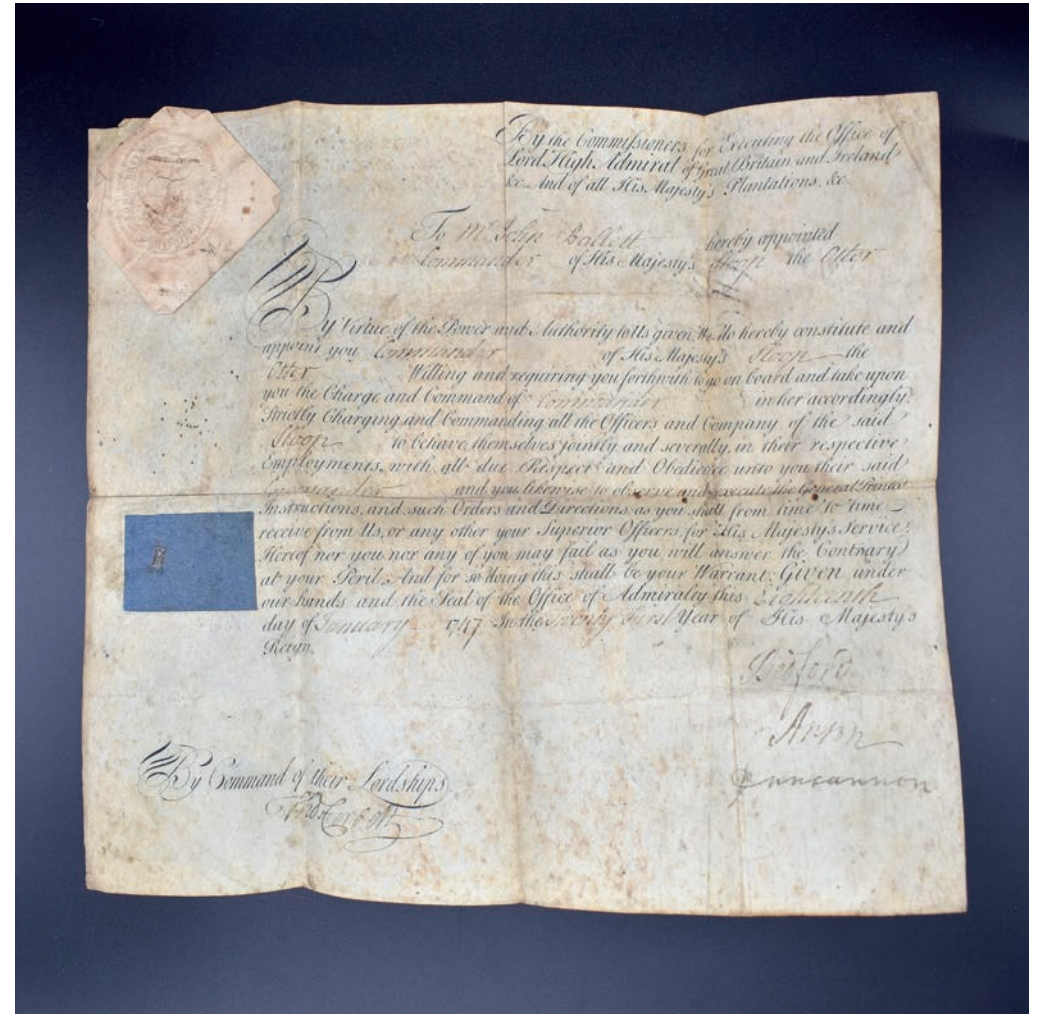 By the Commissioners for Executing the Office of
Lord High Admiral of Great Britain and Ireland
&c. And of all His Majesty's Plantations. &c.
To Mr John Ballett hereby appointed
Commander of His Majesty's Sloop the Otter
By Virtue of the Power and Authority to Us given We do hereby constitute and
appoint you Commander of His Majesty's Sloop the
Otter Willing and requiring you forthwith to go on board and take upon
you the Charge and Command of Commander in her accordingly.
Strictly Charging and Commanding all the Officers and Company of the said
Sloop to behave themselves jointly and severally in their respective
Employments, with all due Respect and Obedience unto you their said
Commander and you likewise to observe and execute the General Printed
Instructions, and such Orders and Directions as you shall from time to time
receive from Us, or any other your Superior Officers for His Majestys Service.
Hereof nor you nor any of you may fail as you will answer the Contrary
at your Peril. And for so doing this shall be your Warrant. Given under
our hands and the Seal of the Office of Admiralty this Eighteenth
day of January 1747 In the Twenty First Year of His Majesty's
Reign.
Bedford
Anson
Duncannon
By Command of their Lordships
Thos Corbett